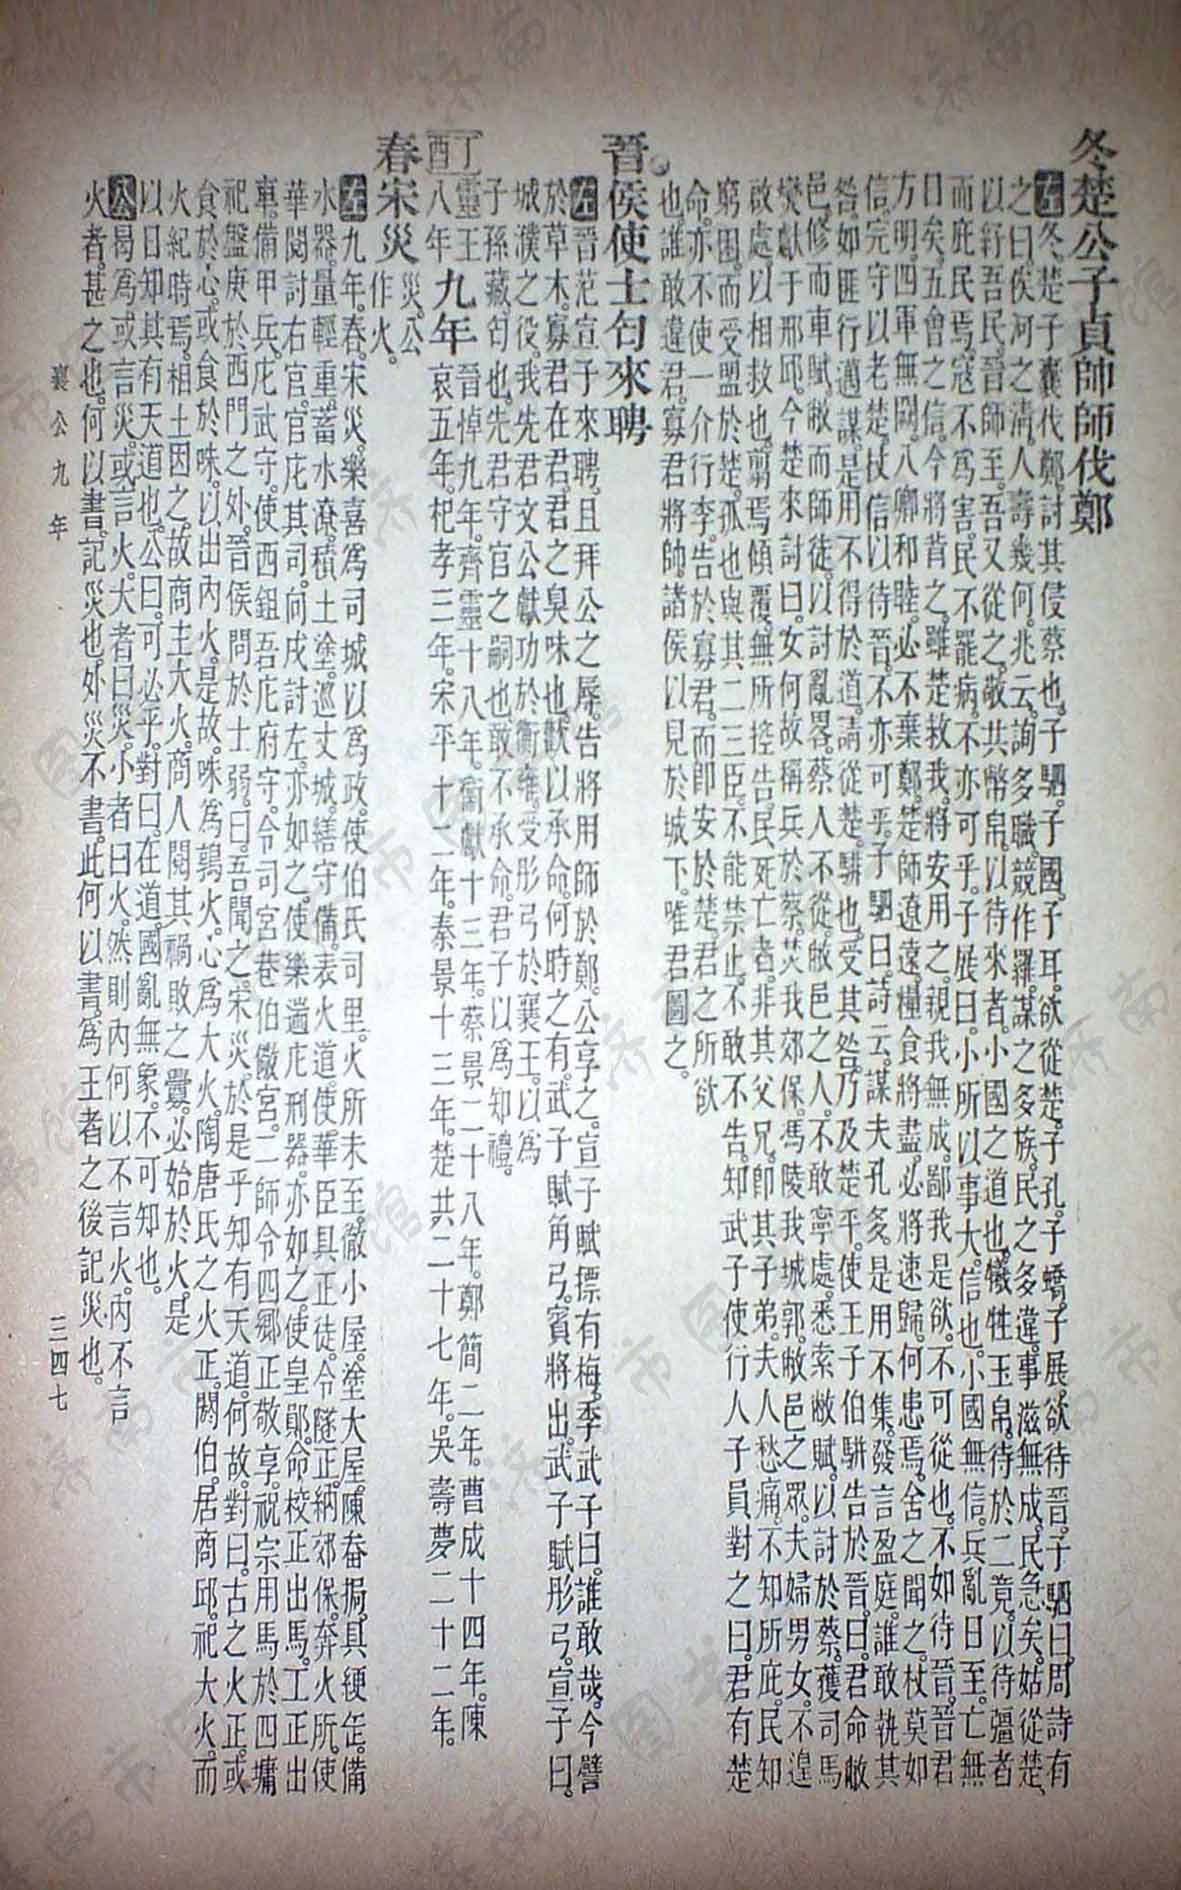 冬楚公子貞師師伐鄭
左冬。楚子囊伐鄭。討其侵蔡也。子駟。子國。子耳。欲從楚。子孔。子蟜。子展。欲待晉。子駟曰。周詩有
之曰。俟河之清。人壽幾何。兆云詢多。職競作羅。謀之多族。民之多違。事滋無成。民急矣。姑從楚。
以紓吾民。晉師至。吾又從之。敬共幣帛。以待來者。小國之道也。犧牲玉帛。待於二竟。以待彊者
而庇民焉。寇不爲害。民不罷病。不亦可乎。子展曰。小所以事大。信也。小國無信。兵亂日至。亡無
日矣。五會之信。今將背之。雖楚救我。將安用之。親我無成。鄙我是欲。不可從也。不如待晉。晉君
方明。四軍無闕。八卿和睦。必不棄鄭。楚師遼遠。糧食將盡。必將速歸。何患焉。舍之聞之。杖莫如
信。完守以老楚。杖信以待晉。不亦可乎。子駟曰。詩云。謀夫孔多。是用不集。發言盈庭。誰敢執其
咎。如匪行邁謀。是用不得於道。請從楚。騑也。受其咎。乃及楚平。使王子伯騈告於晉。曰。君命敝
邑。修而車賦。敝而師徒。以討亂畧。蔡人不從。敝邑之人。不敢寧處。悉索敝賦。以討於蔡。獲司馬
燮。獻于邢邱。今楚來討曰。女何故稱兵於蔡。焚我郊保。馮陵我城郭。敝邑之眾。夫婦男女。不遑
啟處。以相救也。翦焉傾覆。無所控告。民死亡者。非其父兄。卽其子弟。夫人愁痛。不知所庇。民知
窮困。而受盟於楚。孤也與其二三臣。不能禁止。不敢不告。知武子使行人子員對之曰。君有楚
命。亦不使一介行李。告於寡君。而卽安於楚。君之所欲
也。誰敢違君。寡君將帥諸侯以見於城下。唯君圖之。
晉侯使士匄來聘
左晉范宣子來聘。且拜公之辱。告將用師於鄭。公享之。宣子賦摽有梅。季武子曰。誰敢哉。今譬
於草木。寡君在君。君之臭味也。歡以承命。何時之有。武子賦角弓。賓將出。武子賦彤弓。宣子曰。
城濮之役。我先君文公獻功於衡雍。受彤弓於襄王。以爲
子孫藏。匄也。先君守官之嗣也。敢不承命。君子以爲知禮。
丁酉
靈王八年
九年
晉悼九年。齊靈十八年。衞獻十三年。蔡景二十八年。鄭簡二年。曹成十四年。陳
哀五年。杞孝三年。宋平十二年。秦景十三年。楚共二十七年。吳壽夢二十二年。
春宋災
災。公
作火。
左九年。春。宋災。樂喜爲司城以爲政。使伯氏司里。火所未至。徹小屋。塗大屋。陳畚挶。具綆缶。備
水器。量輕重。蓄水潦。積土塗。巡丈城。繕守備。表火道。使華臣具正徒。令隧正。納郊保。奔火所。使
華閱討右官。官庀其司。向戌討左。亦如之。使樂遄庀刑器。亦如之。使皇鄖。命校正出馬。工正出
車。備甲兵。庀武守。使西鉏吾庀府守。令司宮巷伯儆宮。二師令四鄉正敬享。祝宗用馬於四墉
祀盤庚於西門之外。晉侯問於士弱。曰。吾聞之。宋災於是乎知有天道。何故。對曰。古之火正。或
食於心。或食於咮。以出內火。是故。咮爲鶉火。心爲大火。陶唐氏之火正。閼伯。居商邱。祀大火。而
火紀時焉。相土因之。故商主大火。商人閱其禍敗之釁。必始於火。是
以日知其有天道也。公曰。可必乎。對曰。在道。國亂無象。不可知也。
公曷爲。或言災。或言火。大者曰災。小者曰火。然則內何以不言火。內不言
火者。甚之也。何以書。記災也。外災不書。此何以書。爲王者之後記災也。
襄公九年
三四七